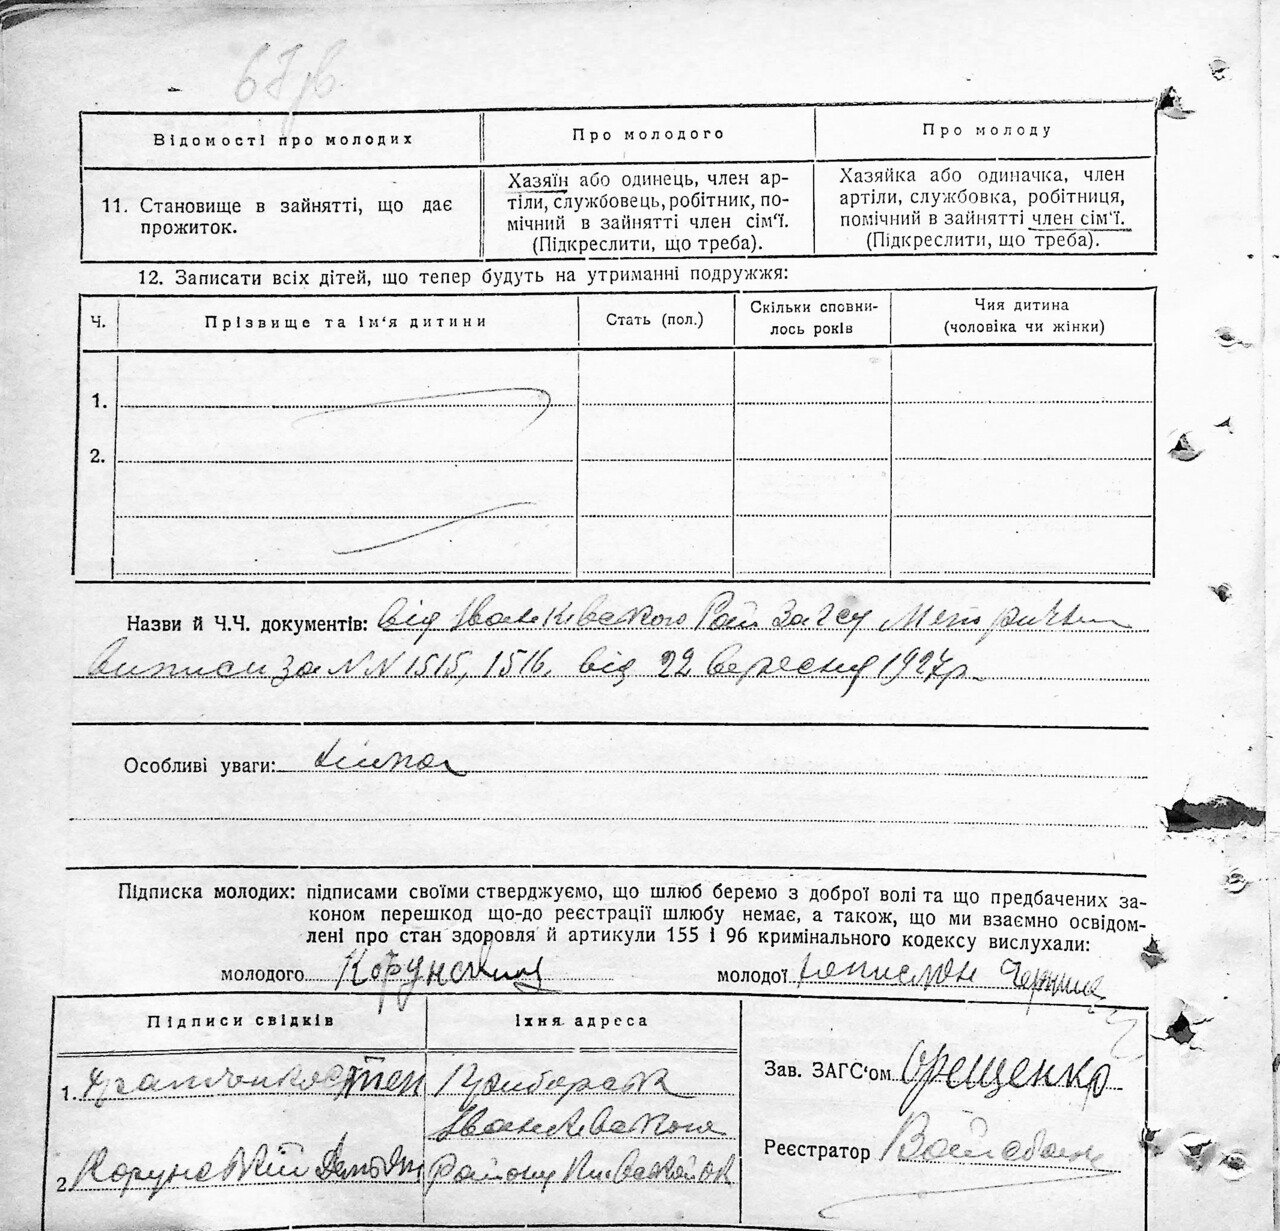 67зв.
Відомості про молодих
Про молодого
Про молоду
11. Становище в зайнятті, що дає прожиток.
Хазяїн або одинець, член ар-
тіли, службовець, робітник, по-
мічний в зайнятті член сім'ї.
(Підкреслити, що треба).
Хазяйка або одиначка, член
артіли, службовка, робітниця,
помічний в зайнятті член сім'ї.
(Підкреслити, що треба).
12. Записати всіх дітей, що тепер будуть на утриманні подружжя:
Ч.
Прізвище та ім'я дитини
Стать (пол.)
Скільки сповни-
лось років
Чия дитина
(чоловіка чи жінки)
1.
2.
Назви й Ч.Ч. документів: від Іванківського Рай Загсу Метричні
виписи за NN 1515, 1516. від 22 вересня 1927р.
Особливі уваги:
Підписка молодих: підписами своїми стверджуємо, що шлюб беремо з доброї волі та що предбачених за-
коном перешкод що-до реєстрації шлюбу немає, а також, що ми взаємно освідом-
лені про стан здоровля й артикули 155 і 96 кримінального кодексу вислухали:
молодого Корунский
молодої
Підписи свідків
Їхня адреса
1.
Іванківського
2. Корунский
району
Зав. ЗАГС'ом Орещенко
Реєстратор